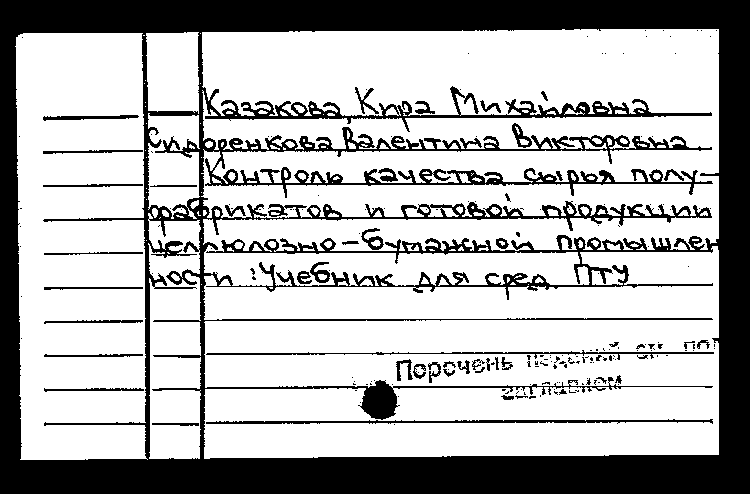 Казакова, Кира Михайловна
Сидоренкова, Валентина Викторовна.
Контроль качества сырья полу-
фабрикатов и готовой продукции
целлюлозно-бумажной промышлен
ности : Учебник для сред. ПТУ.
Перечень изданий см. под
заглавием